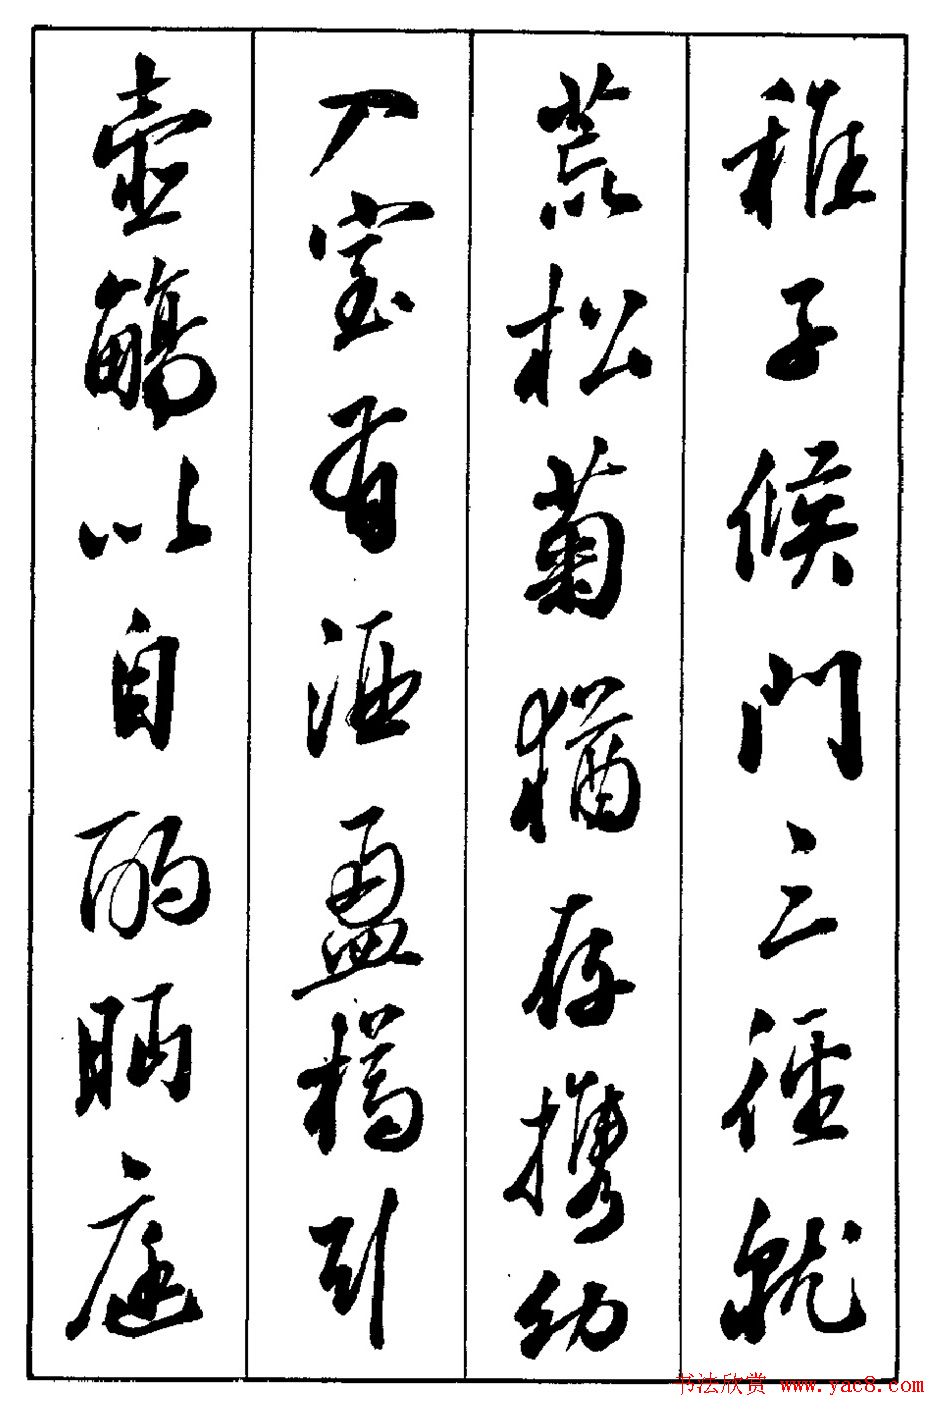 稚子候門三徑就
荒松菊猶存携幼
入室有酒盈樽引
壺觴以自酌眄庭
书法欣赏 www.yac8.com